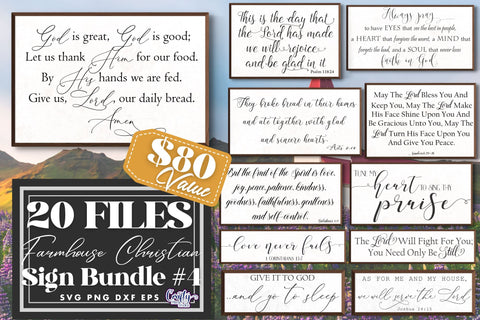 God is great, God is good;
Let us thank Him for our food.
By His hands we are fed.
Give us, Lord, our daily bread.
Amen
$80
Value
20 FILES
Farmhouse Christian
Sign Bundle #4
SVG PNG DXF EPS
This is the day that
the Lord has made
we will rejoice
and be glad in it
Psalm 118:24
They broke bread in their homes
and ate together with glad
and sincere hearts.
Acts 2:46
But the fruit of the Spirit is love,
joy, peace, patience, kindness,
goodness, faithfulness, gentleness
and self-control.
Love never fails
1 CORINTHIANS 13:7
GIVE IT TO GOD
and go to sleep
Always pray
to have EYES that see the best in people,
a HEART that forgives the worst, a MIND that
forgets the bad, and a SOUL that never loses
faith in God.
May The Lord Bless You And
Keep You, May The Lord Make
His Face Shine Upon You And
Be Gracious Unto You, May The
Lord Turn His Face Upon You
And Give You Peace.
TUNE MY
heart
TO SING THY
praise
The Lord Will Fight For You;
You Need Only Be Still
AS FOR ME AND MY HOUSE,
we will serve the Lord
Joshua 24:15